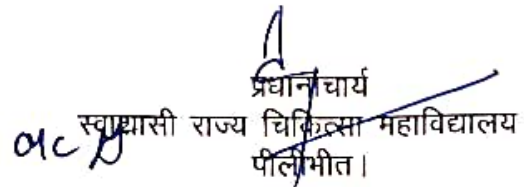 प्रधानाचार्य
स्वाशासी राज्य चिकित्सा महाविद्यालय
पीलीभीत।